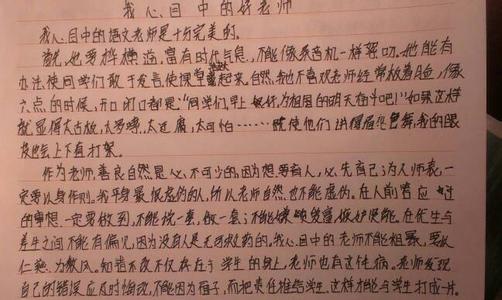 我心目中的好老师
我心目中的语文老师是十分完美的。
首先,他要丰富,富有时代气息,不能像录音机一样絮叨。他能有
办法使同学们敢于发言,使课堂起来。自然,我也不喜欢老师经常板着面,像
六点的时候,开口闭口都是:"同学们早上好,为祖国的明天奋斗吧!"如果这样
就显得太古板,太罗嗦,太迂腐,太可怕……使他们讲得眉飞色舞,我的眼
皮也会上下直打架。
作为老师,善良自然是必不可少的,因为想要育人,必先自己为人师表,一
定要以身作则。我平身最恨虚伪的人,所以老师自然也不能虚伪。在人前答应过
的事想一定要做到,不能说一套,做一套;不能。在优生与
差生之间不能有偏见,因为没有人是无可救药的。我心目中的老师不能粗暴,要以
仁慈为教风。知错不改不仅存在于学生的身上,老师也有这传病。老师发现
自己的错误应及时悔改,不能因为面子,而把责任推给学生。这样才能与学生打成一片。